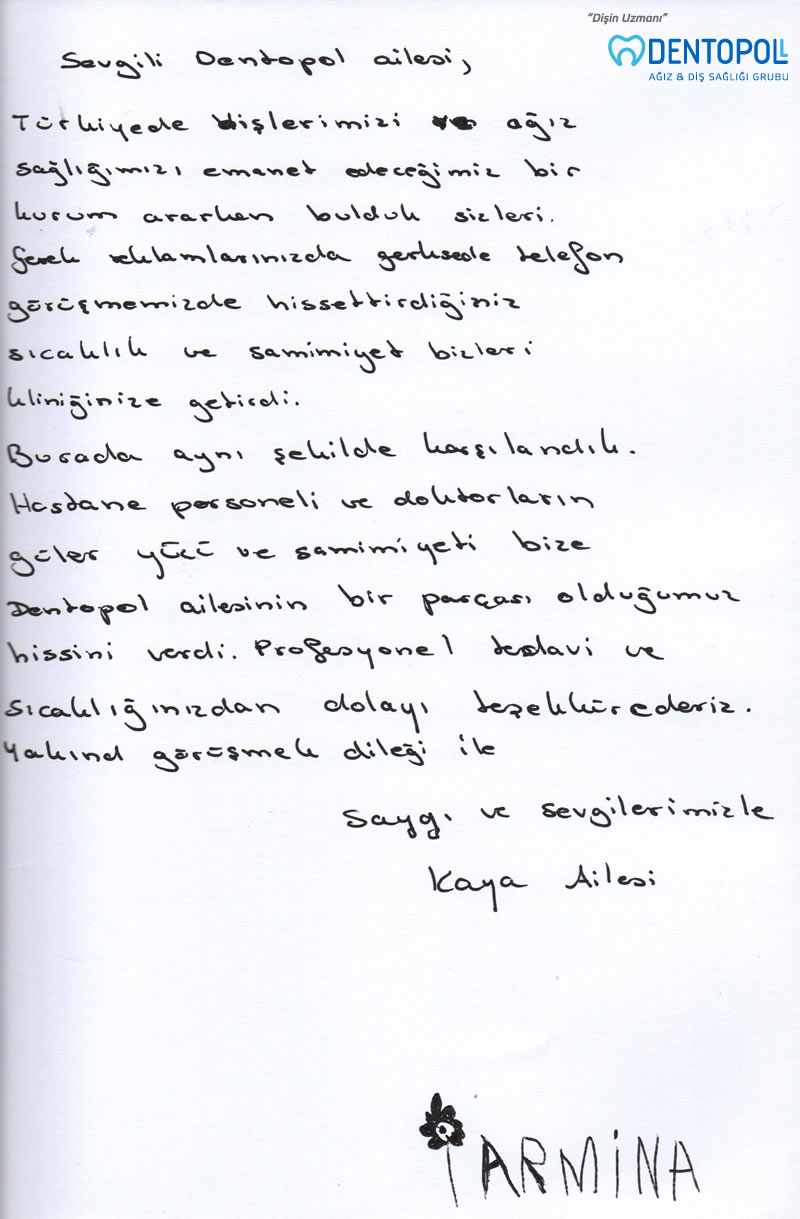 "Dişin Uzmanı"
DENTOPOLL
AĞIZ & DİŞ SAĞLIĞI GRUBU
Sevgili Dentopol ailesi,
Türkiyede dişlerimizi ve ağız
sağlığımızı emanet edeceğimiz bir
kurum ararken bulduk sizleri.
Gerek reklamlarınızda gerksede telefon
görüşmemizde hissettirdiğiniz
sıcaklık ve samimiyet bizleri
kliniğinize getirdi.
Burada aynı şekilde karşılandık.
Hastane personeli ve doktorların
güler yüzü ve samimiyeti bize
Dentopol ailesinin bir parçası olduğumuz
hissini verdi. Profesyonel tedavi ve
sıcaklığınızdan dolayı teşekkürederiz.
Yakınd görüşmek dileği ile
Saygı ve sevgilerimizle
Kaya Ailesi
ARMİNA